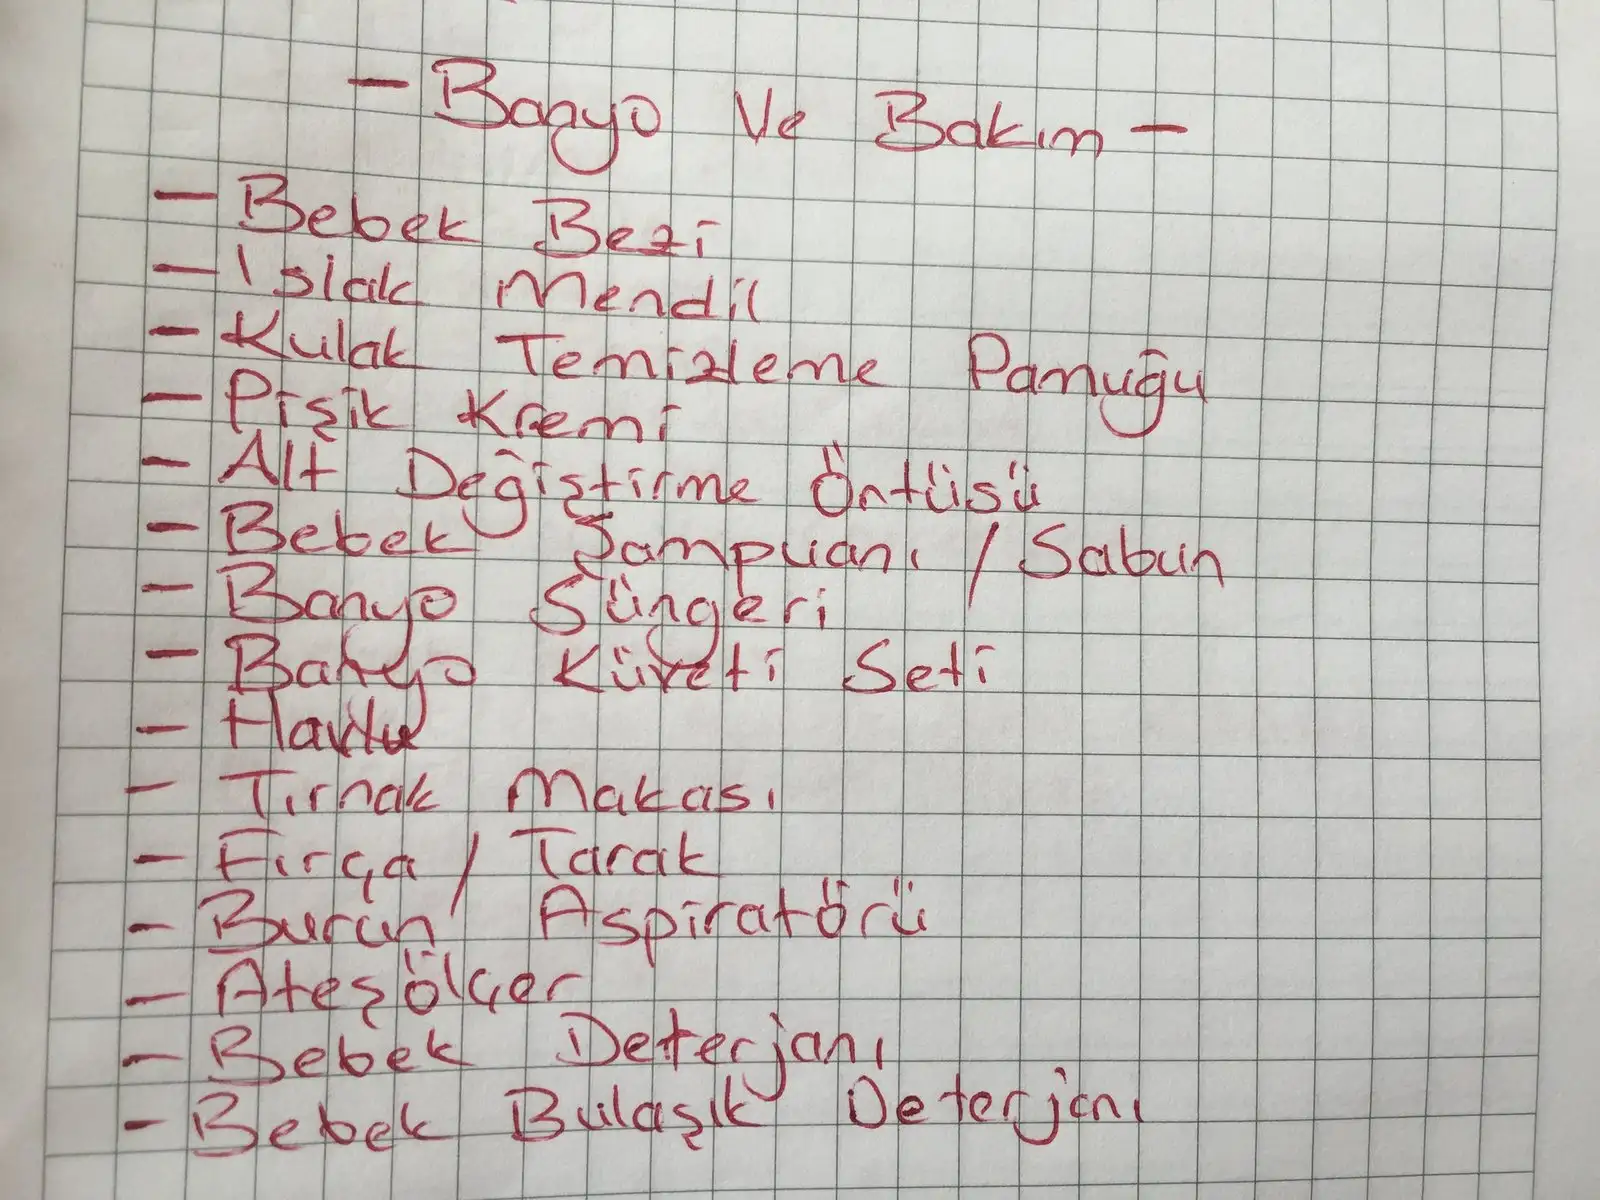 - Banyo Ve Bakım -
- Bebek Bezi
- Islak Mendil
- Kulak Temizleme Pamuğu
- Pişik Kremi
- Alt Değiştirme Öntüsü
- Bebek Şampuanı / Sabun
- Banyo Süngeri
- Banyo Küveti Seti
- Havlu
- Tırnak Makası
- Fırça / Tarak
- Burun Aspiratörü
- Ateşölçer
- Bebek Deterjanı
- Bebek Bulaşık Deterjanı